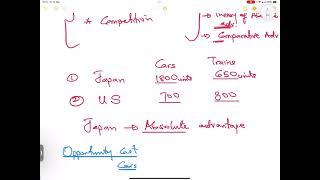 * Competition
Theory of
adv!
Comparative Adv
Cars Trains
① Japan 1800 units 650 units
② US 700 800
Japan → Absolute advantage
Opportunity Cost
Cars